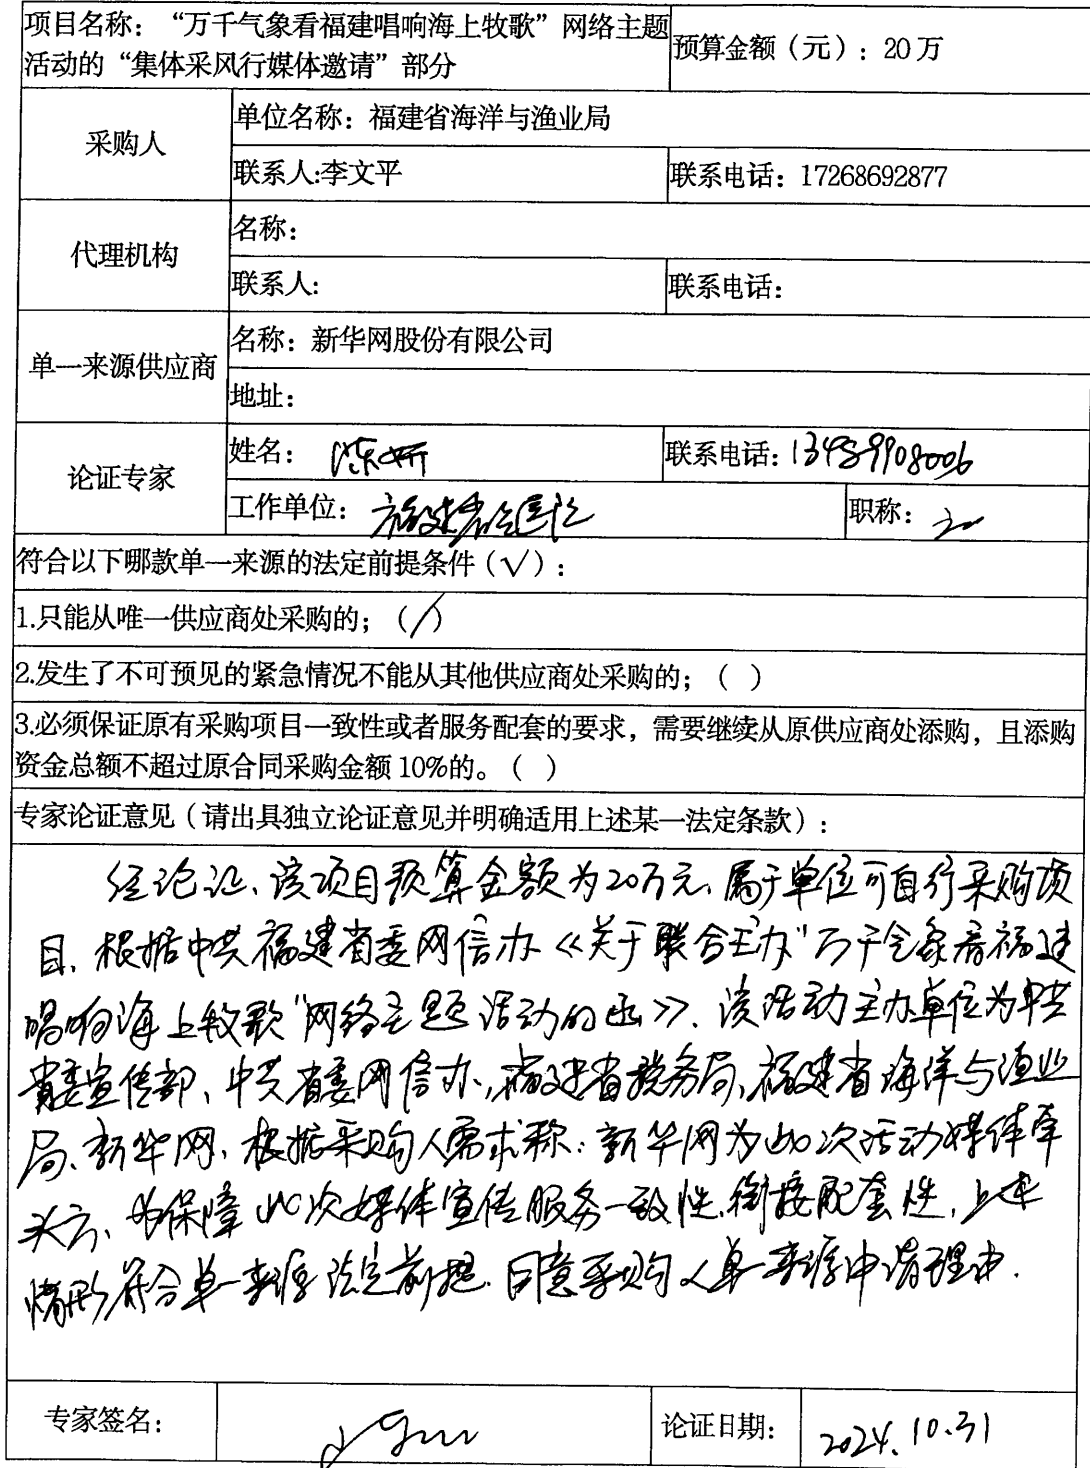 项目名称：“万千气象看福建唱响海上牧歌”网络主题
活动的“集体采风行媒体邀请”部分
预算金额（元）：20万
采购人
单位名称：福建省海洋与渔业局
联系人:李文平
联系电话：17268692877
代理机构
名称：
联系人:
联系电话：
单一来源供应商
名称：新华网股份有限公司
地址：
论证专家
姓名：陈妍
联系电话：13489908006
工作单位：福建省
职称：
符合以下哪款单一来源的法定前提条件（√）：
1.只能从唯一供应商处采购的；（√）
2.发生了不可预见的紧急情况不能从其他供应商处采购的；（ ）
3.必须保证原有采购项目一致性或者服务配套的要求，需要继续从原供应商处添购，且添购
资金总额不超过原合同采购金额 10%的。（ ）
专家论证意见（请出具独立论证意见并明确适用上述某一法定条款）：
经论证、该项目预算金额为20万元、属于单位可自行采购项
目、根据中共福建省委网信办《关于联合主办“万千气象看福建
唱响海上牧歌”网络主题活动的函》、该活动主办单位为中共
省委宣传部、中共省委网信办、福建省税务局、福建省海洋与渔业
局、新华网、根据采购人需求称：新华网为此次活动媒体牵
头方、为保障此次媒体宣传服务一致性、衔接配套性、上述
情形符合单一来源法定前提、同意采购人单一来源申请理由.
专家签名：
论证日期：
2024.10.31